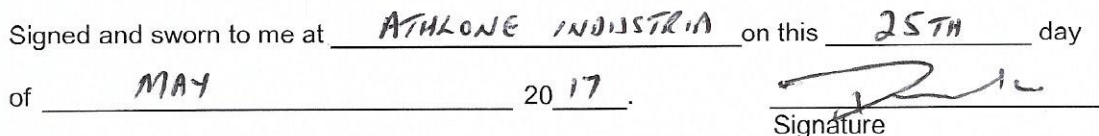 Signed and sworn to me at ATHLONE INDUSTRIA on this 25TH day
of MAY 20 17.
Signature